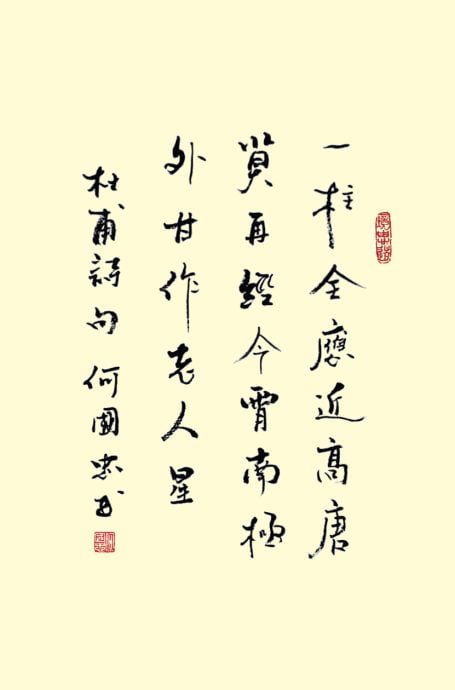 一柱全應近高唐
莫再經今霄南極
外甘作老人星
杜甫詩句 何國忠書